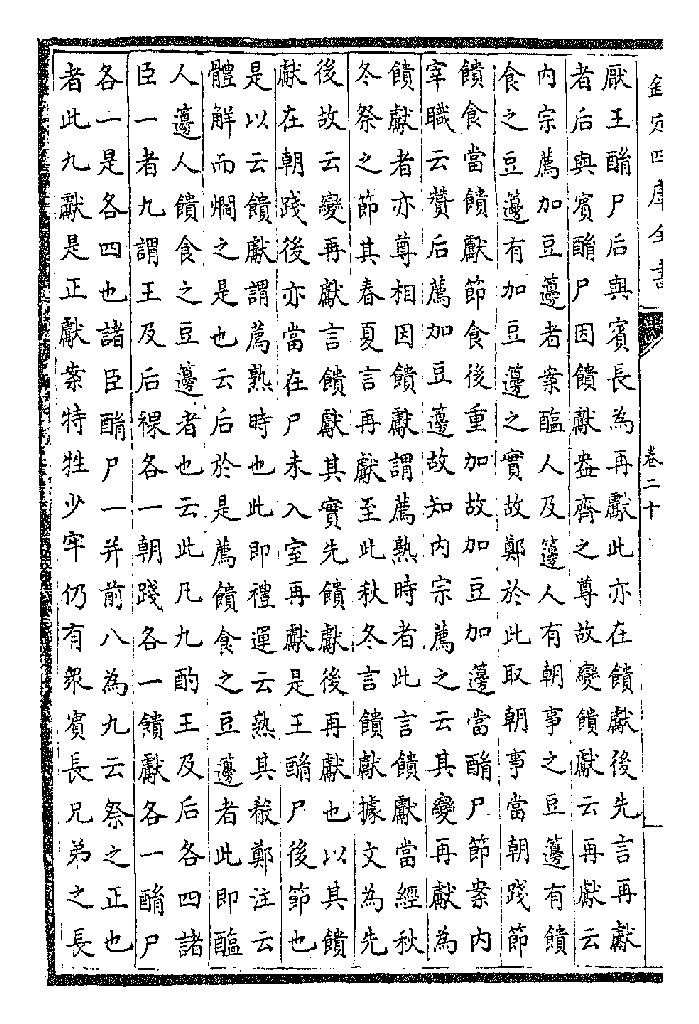 欽定四庫全書
卷二十
厭王酳尸后與賓長為再獻此亦在饋獻後先言再獻
者后與賓酳尸因饋獻盎齊之尊故變饋獻云再獻云
内宗薦加豆籩者案醢人及籩人有朝事之豆籩有饋
食之豆籩有加豆籩之實故鄭於此取朝事當朝踐節
饋食當饋獻節食後重加故加豆加籩當酳尸節案内
宰職云贊后薦加豆籩故知内宗薦之云其變再獻為
饋獻者亦尊相因饋獻謂薦熟時者此言饋獻當經秋
冬祭之節其春夏言再獻至此秋冬言饋獻據文為先
後故云變再獻言饋獻其實先饋獻後再獻也以其饋
獻在朝踐後亦當在尸未入室再獻是王酳尸後節也
是以云饋獻謂薦熟時也此即禮運云熟其殽鄭注云
體解而爓之是也云后於是薦饋食之豆籩者此即醢
人籩人饋食之豆籩者也云此凡九酌王及后各四諸
臣一者九謂王及后祼各一朝踐各一饋獻各一酳尸
各一是各四也諸臣酳尸一并前八為九云祭之正也
者此九獻是正獻案特牲少牢仍有衆賓長兄弟之長